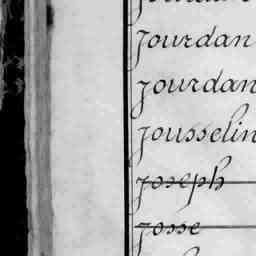 Jourdan
Jourdan
Jousselin
Joseph
Josse